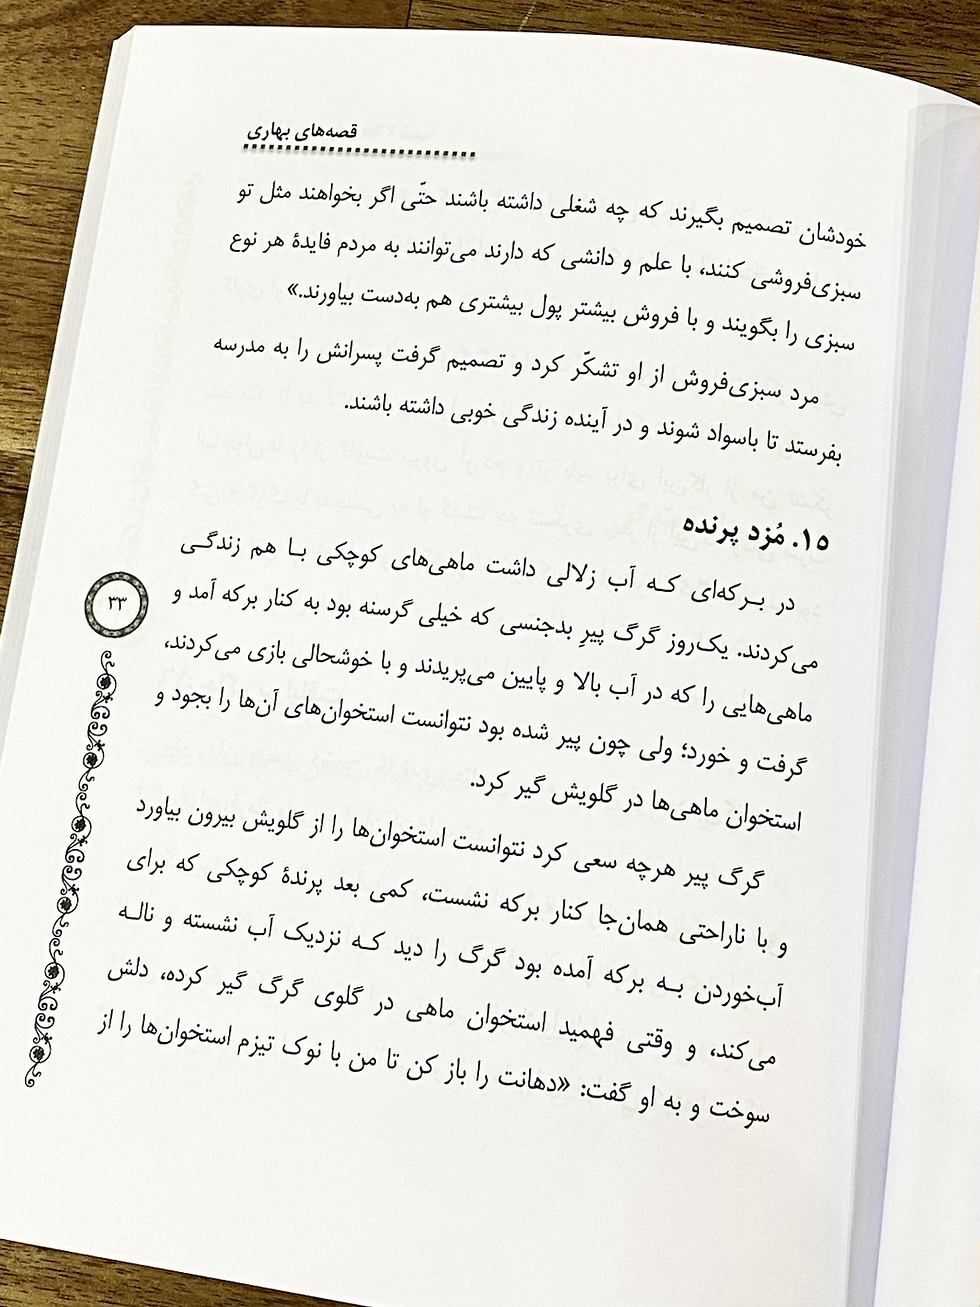 قصه‌های بهاری
خودشان تصمیم بگیرند که چه شغلی داشته باشند حتّی اگر بخواهند مثل تو
سبزی‌فروشی کنند، با علم و دانشی که دارند می‌توانند به مردم فایدهٔ هر نوع
سبزی را بگویند و با فروش بیشتر پول بیشتری هم به‌دست بیاورند.»
مرد سبزی‌فروش از او تشکّر کرد و تصمیم گرفت پسرانش را به مدرسه
بفرستد تا باسواد شوند و در آینده زندگی خوبی داشته باشند.
۱۵. مُزد پرنده
در بـرکه‌ای کـه آب زلالی داشت ماهی‌های کوچکی بـا هم زندگـی
می‌کردند. یک‌روز گرگ پیرِ بدجنسی که خیلی گرسنه بود به کنار برکه آمد و
ماهی‌هایی را که در آب بالا و پایین می‌پریدند و با خوشحالی بازی می‌کردند،
گرفت و خورد؛ ولی چون پیر شده بود نتوانست استخوان‌های آن‌ها را بجود و
استخوان ماهی‌ها در گلویش گیر کرد.
گرگ پیر هرچه سعی کرد نتوانست استخوان‌ها را از گلویش بیرون بیاورد
و با ناراحتی همان‌جا کنار برکه نشست، کمی بعد پرندهٔ کوچکی که برای
آب‌خوردن بـه برکه آمده بود گرگ را دید کـه نزدیک آب نشسته و نالـه
می‌کند، و وقتی فهمید استخوان ماهی در گلوی گرگ گیر کرده، دلش
سوخت و به او گفت: «دهانت را باز کن تا من با نوک تیزم استخوان‌ها را از
۳۳